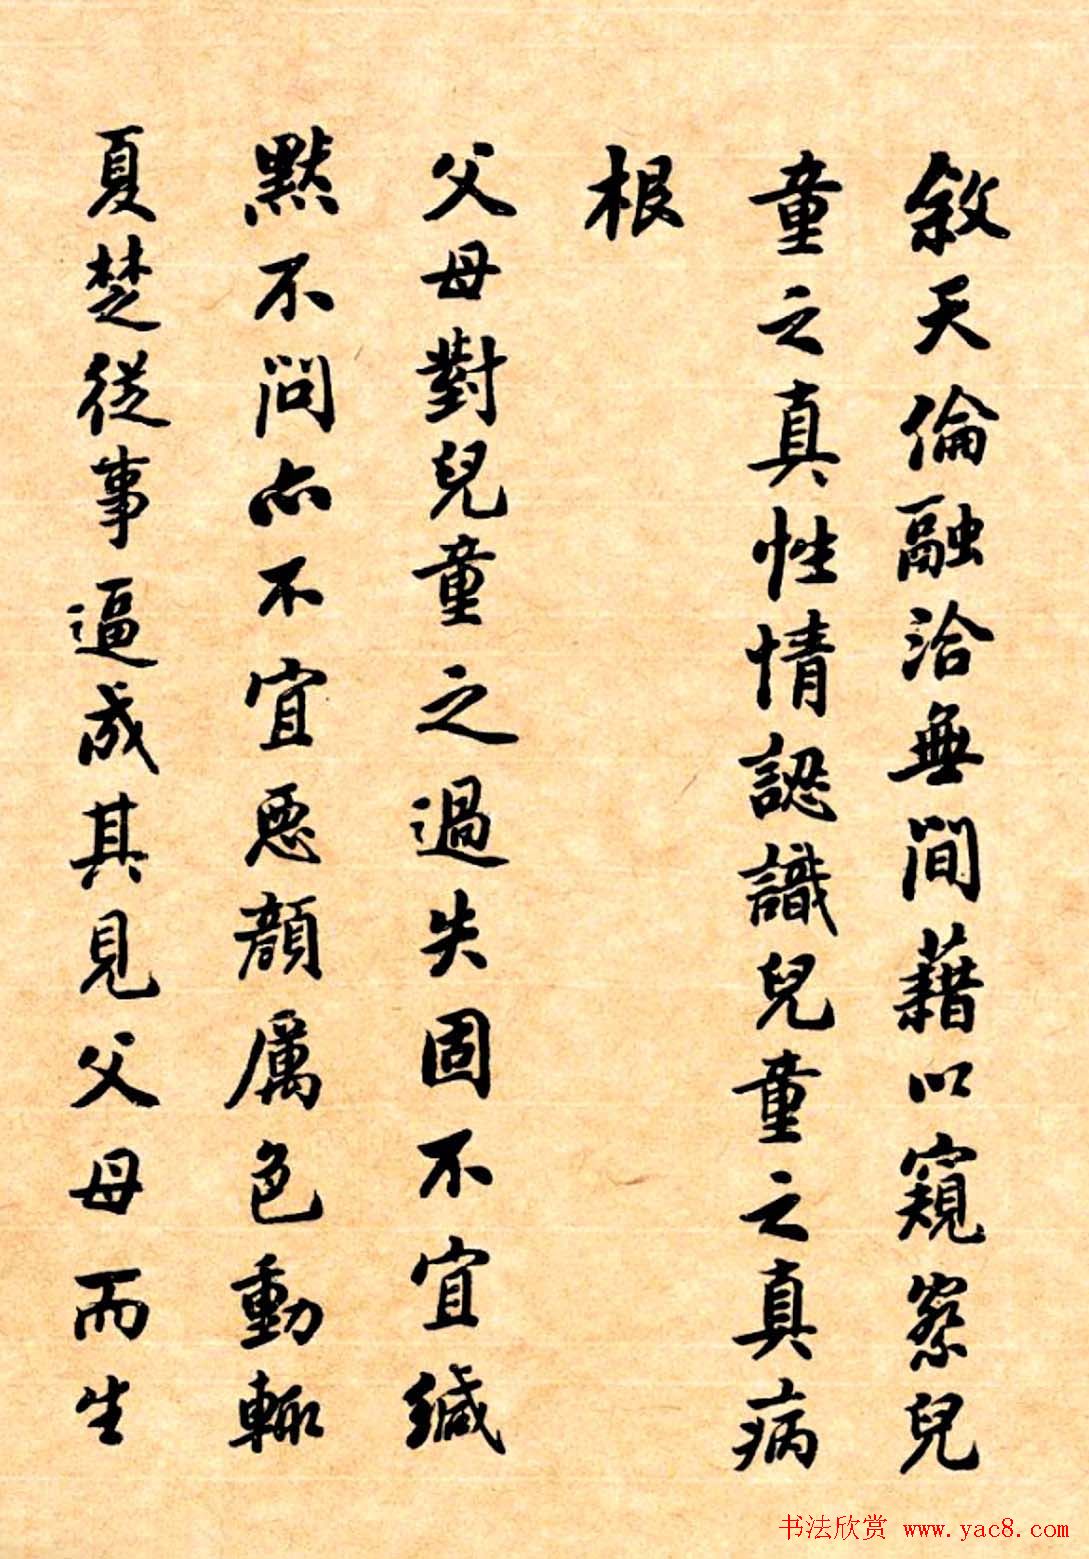 敘天倫融洽無間藉以窺察兒
童之真性情認識兒童之真病
根
父母對兒童之過失固不宜緘
默不問亦不宜惡顏厲色動輒
夏楚從事逼成其見父母而生
书法欣赏 www.yac8.com